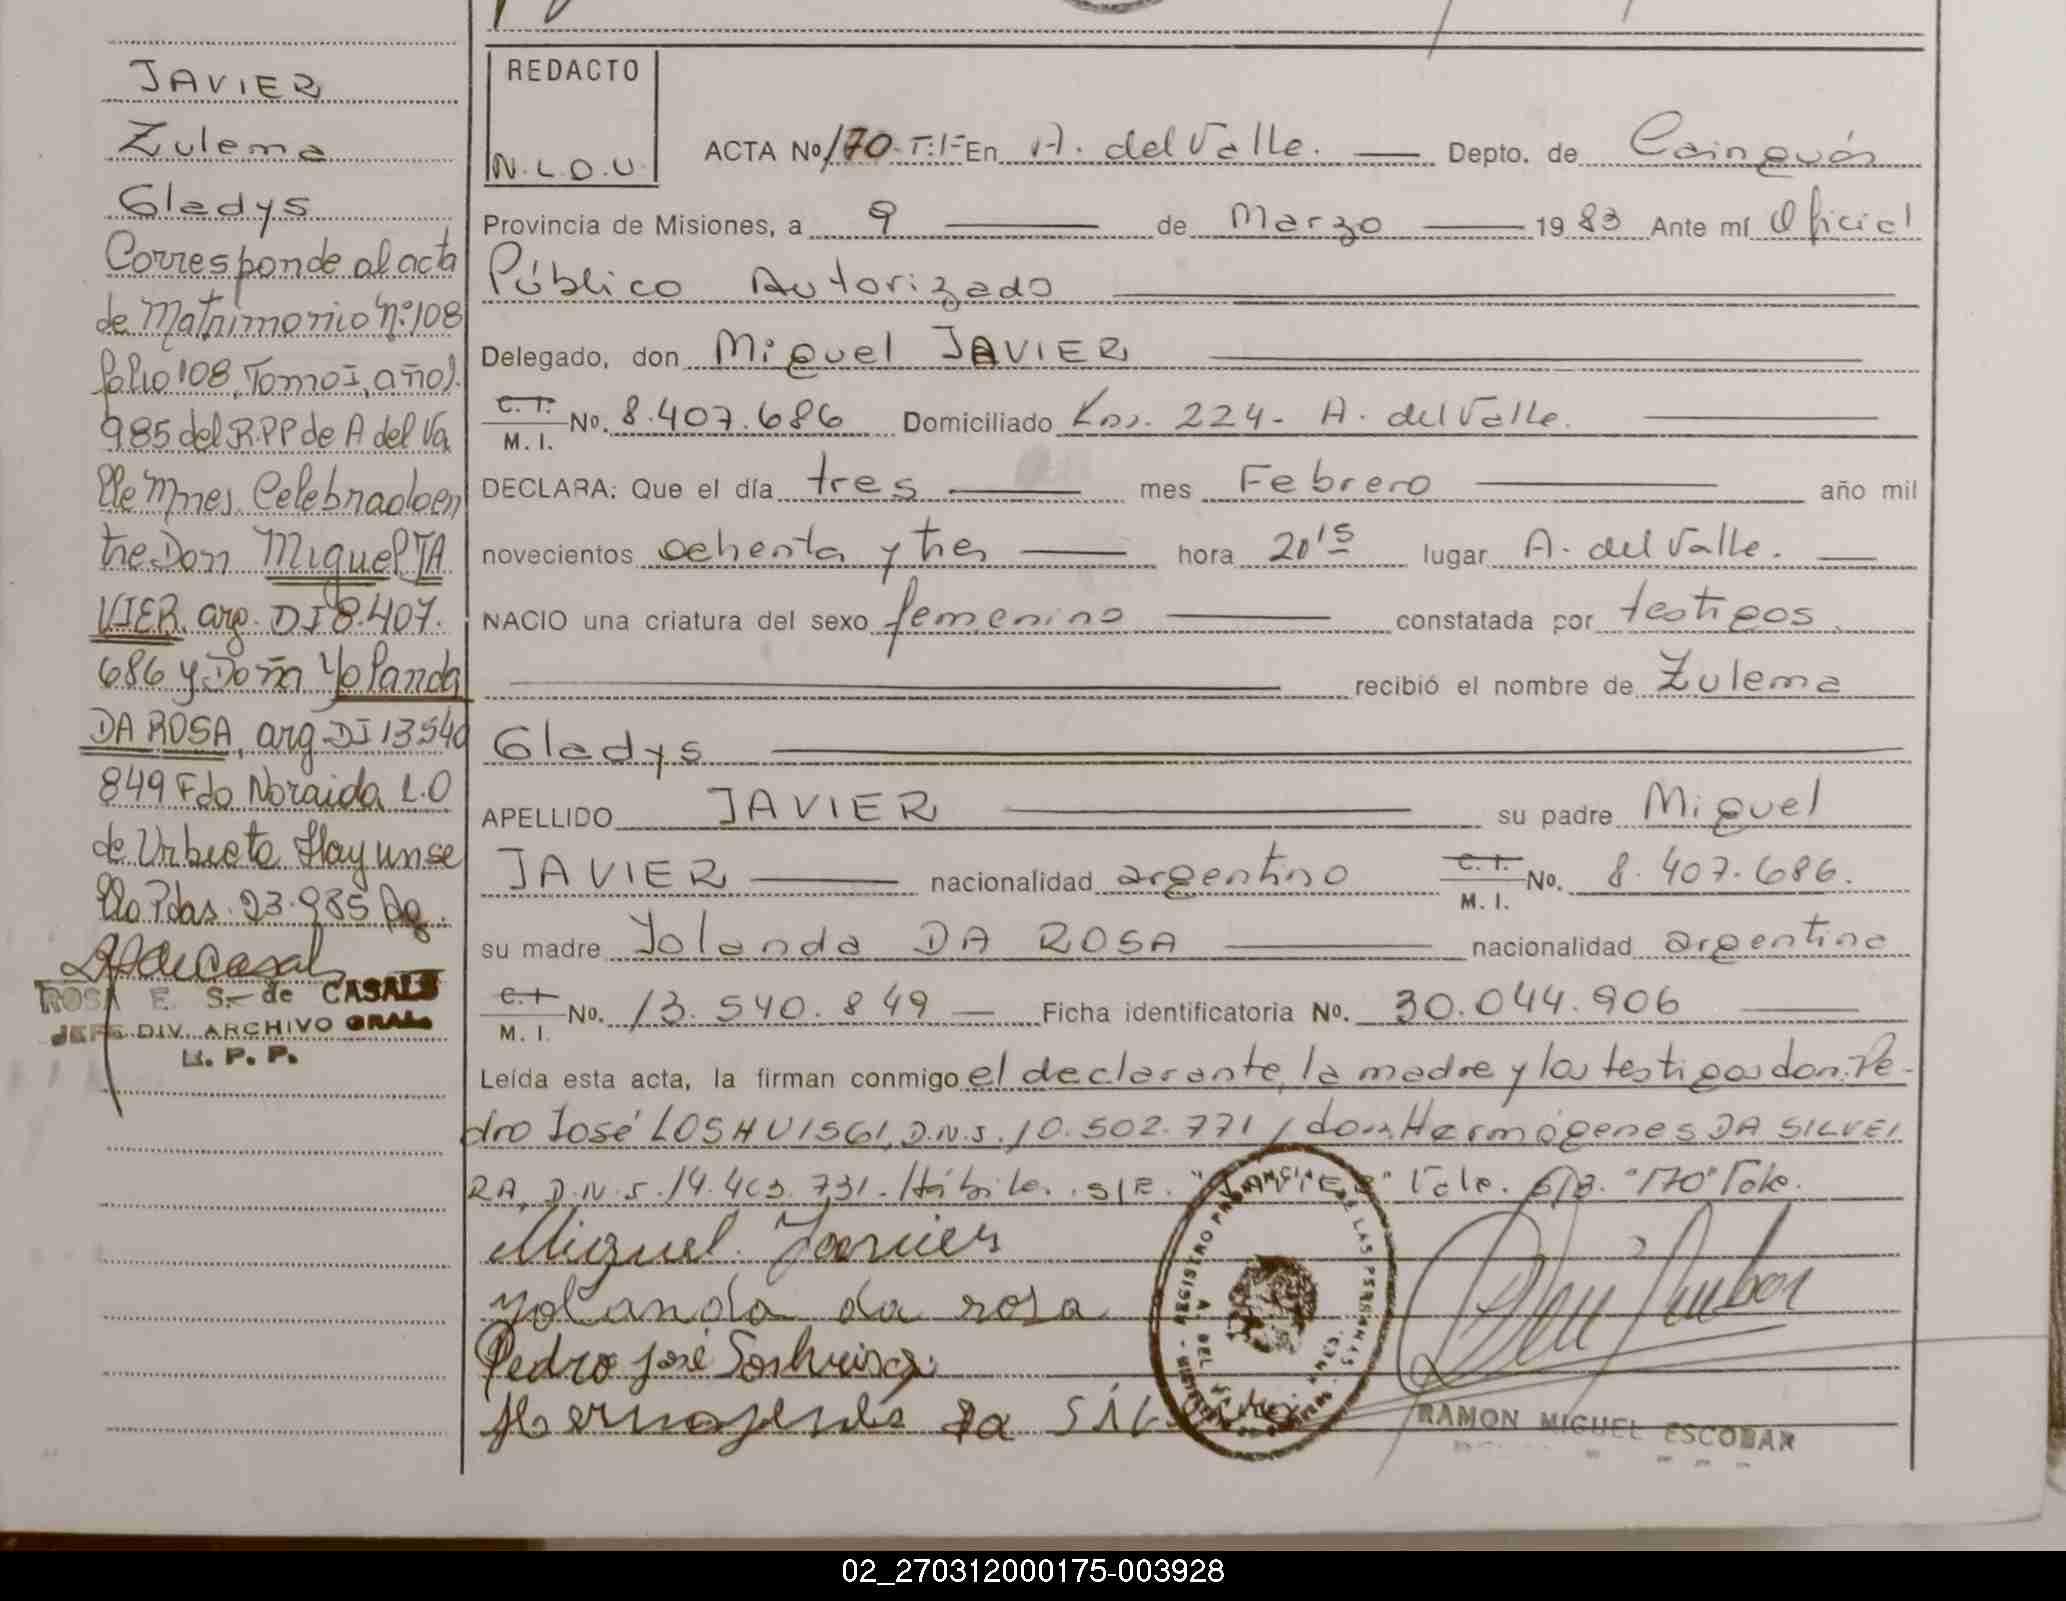 JAVIER
Zulema
Gladys
Corresponde al acta
de Matrimonio Nº 108
folio 108, Tomo I, año 1.
985 del R.P.P de A del Va
lle Mnes. Celebrado en
tre Don Miguel JA
VIER, arg. DI 8.407.
686 y Doña Yolanda
DA ROSA, arg. DI 13540
849 Fdo Noraida L.O
de Urbieta Hay un se
llo Pdas. 23.985
ROSA E. S. de CASALS
JEFE DIV. ARCHIVO GRAL.
R. P. P.
REDACTO
N.L.D.U.
ACTA Nº 170. T:I-F En A. del Valle. Depto. de Cainguás
Provincia de Misiones, a 9 de Marzo 1983 Ante mí Oficial
Público Autorizado
Delegado, don Miguel JAVIER
C. I.
M. I. No. 8.407.686 Domiciliado Km. 224- A. del Valle.
DECLARA: Que el día tres mes Febrero año mil
novecientos ochenta y tres hora 20 15 lugar A. del Valle.
NACIO una criatura del sexo femenino constatada por testigos
recibió el nombre de Zulema
Gladys
APELLIDO JAVIER su padre Miguel
JAVIER nacionalidad argentino C. I.
M. I. No. 8.407.686.
su madre Yolanda DA ROSA nacionalidad argentina
C. I.
M. I. No. 13.540.849 Ficha identificatoria No. 30.044.906
Leída esta acta, la firman conmigo el declarante, la madre y los testigos don: Pe-
dro José LOSHUISGI, D.N.I. 10.502.771, don Hermógenes DA SILVEI
RA, D.N.I. 14.463.731. Hábile. S/R. Vale. S/B. "170" Vale.
Miguel Javier
yolanda da rosa
Pedro José
Hermogenes da
REGISTRO PROVINCIAL DE LAS PERSONAS
A. DEL
MNES.
RAMON MIGUEL ESCOBAR
02_270312000175-003928